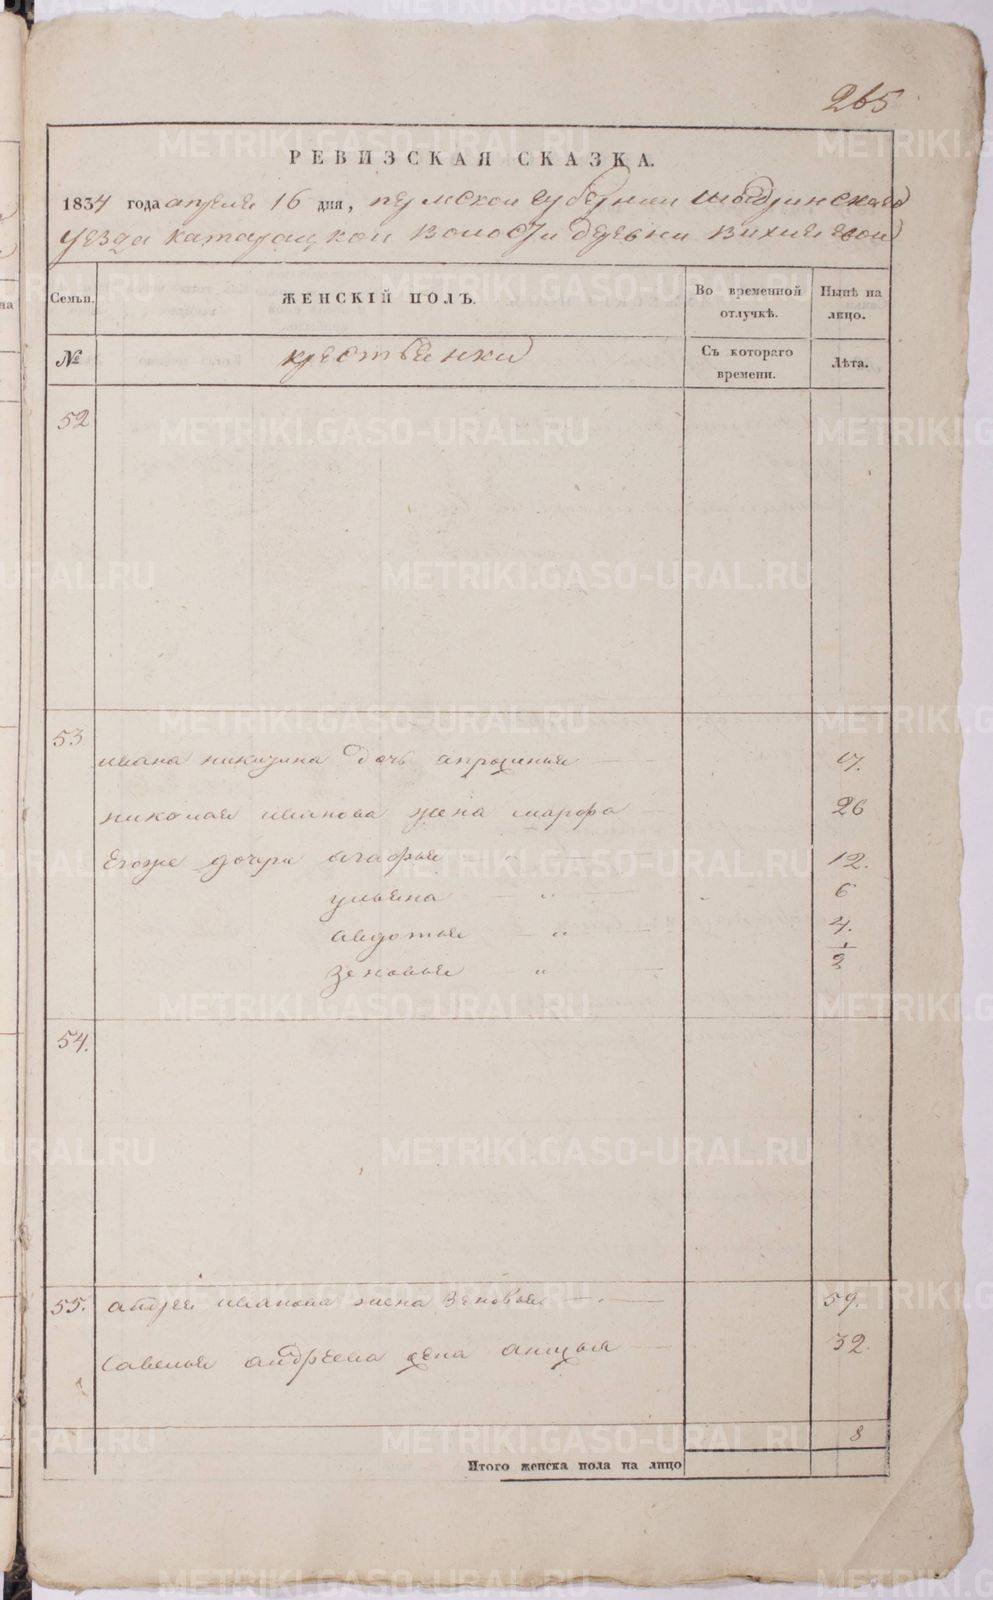 265
РЕВИЗСКАЯ СКАЗКА.
1834 года апреля 16 дня, пермской губернии шадринскаго
уезда катарацкой волости деревни
Семьи. ЖЕНСКІЙ ПОЛЪ. Во временной отлучкѣ. Нынѣ на лицо.
№ крестьянки Съ котораго времени. Лѣта.
52
53
ивана никитина дочь апросинья 17.
николая иванова жена марфа 26
Егоже дочери агафья " 12.
ульяна " 6
авдотья " 4.
зеновья " 1/2
54.
55. андрея иванова жена Зеновья 59.
Савелья андреева жена 32.
8
Итого женска пола на лицо
METRIKI.GASO-URAL.RU